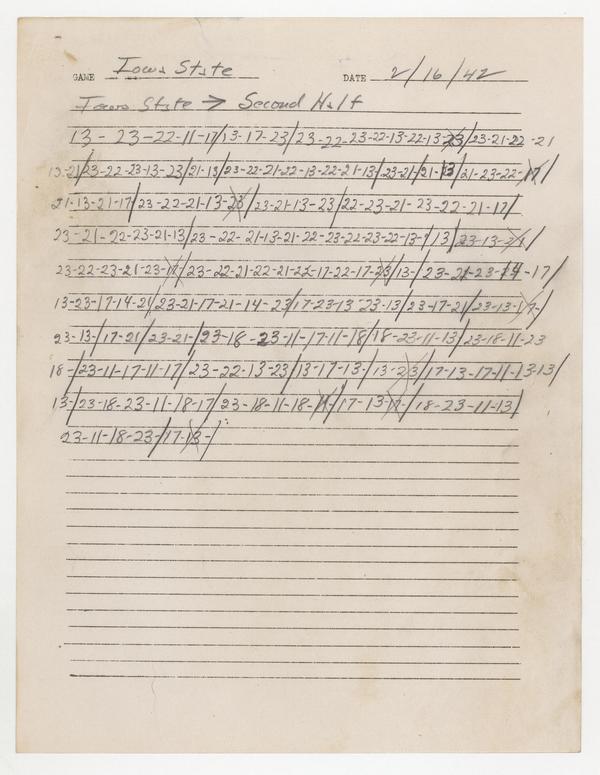 GAME Iowa State DATE 2/16/42
Iowa State → Second Half
13-23-22-11-17/13-17-23/23-22-23-22-13-22-13-23/23-21-22-21
13-21/23-22-23-13-23/21-13/23-22-21-22-13-22-21-13/23-21/21-13/21-23-22-17/
21-13-21-17/23-22-21-13-23/23-21-13-23/22-23-21-23-22-21-17/
23-21-22-23-21-13/23-22-21-13-21-22-23-22-23-22-13-/13/23-13-21/
23-22-23-21-23-17/23-22-21-22-21-22-17-22-17-23/13-/23-21-23-14-17/
13-23-17-14-21/23-21-17-21-14-23/17-23-13-23-13/23-17-21/23-13-17-/
23-13-/17-21/23-21-/23-18-23-11-17-11-18/18-23-11-13/23-18-11-23
18-/23-11-17-11-17/23-22-13-23/13-17-13-/13-23/17-13-17-11-13-13/
13-/23-18-23-11-18-17/23-18-11-18-11-/17-13-17-/18-23-11-13/
23-11-18-23-/17-13-/